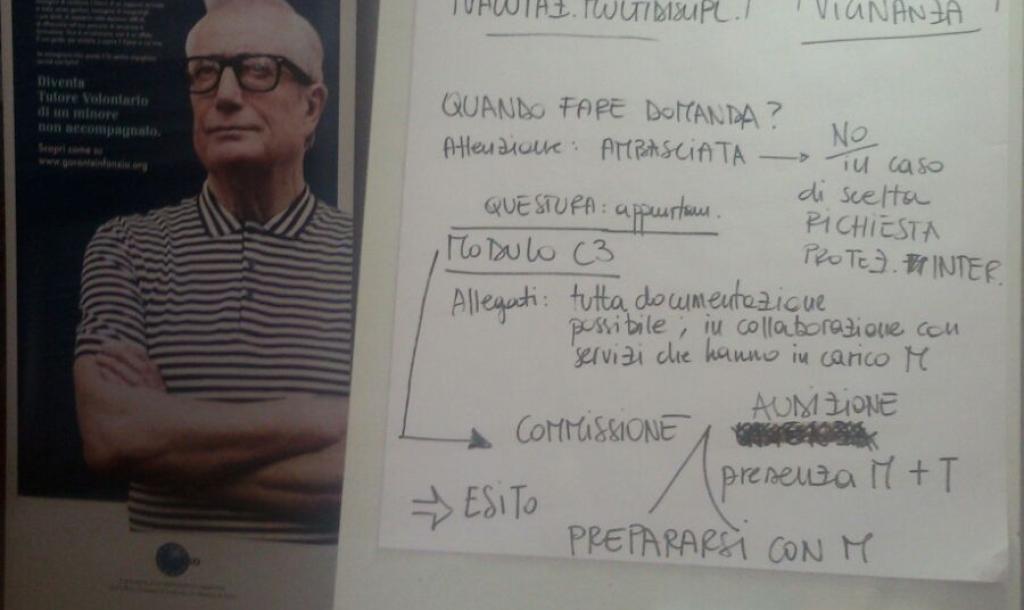 Diventa
Tutore Volontario
di un minore
non accompagnato.
Scopri come su
www.garanteinfanzia.org
VALUTAZ. MULTIDISCIPL. / VIGNANZA
QUANDO FARE DOMANDA?
Attenzione: AMBASCIATA → NO
in caso
di scelta
RICHIESTA
PROTEZ. INTER.
QUESTURA: appuntam.
MODULO C3
Allegati: tutta documentazione
possibile, in collaborazione con
servizi che hanno in carico M
COMMISSIONE
AUDIZIONE
presenza M + T
⇒ ESITO
PREPARARSI CON M